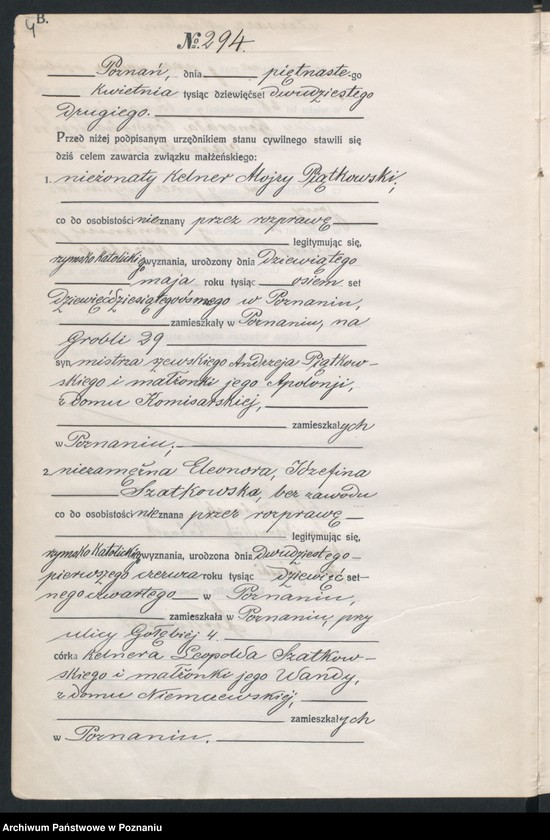 B.
4
No. 294.
Poznań, dnia piętnaste-go
kwietnia tysiąc dziewięćset dwudziestego
drugiego.
Przed niżej podpisanym urzędnikiem stanu cywilnego stawili się
dziś celem zawarcia związku małżeńskiego:
1. nieżonaty kelner Alojzy Piątkowski,
co do osobistości nieznany przez rozprawę
legitymując się,
rzymsko katolickiego wyznania, urodzony dnia dziewiątego
maja roku tysiąc osiem set
dziewięćdziesiątego ósmego w Poznaniu,
zamieszkały w Poznaniu, na
Grobli 29
syn mistrza szewskiego Andrzeja Piątkow-
skiego i małżonki jego Apolonji,
z domu Komisarskiej,
zamieszkałych
w Poznaniu;
2. niezamężna Eleonora, Józefina
Szatkowska, bez zawodu
co do osobistości nieznana przez rozprawę
legitymując się,
rzymsko katolickiego wyznania, urodzona dnia dwudziestego-
pierwszego czerwca roku tysiąc dziewięć set-
nego czwartego w Poznaniu,
zamieszkała w Poznaniu, przy
ulicy Gołębiej 4.
córka kelnera Leopolda Szatkow-
skiego i małżonki jego Wandy,
z domu Niemczewskiej,
zamieszkałych
w Poznaniu.
Archiwum Państwowe w Poznaniu